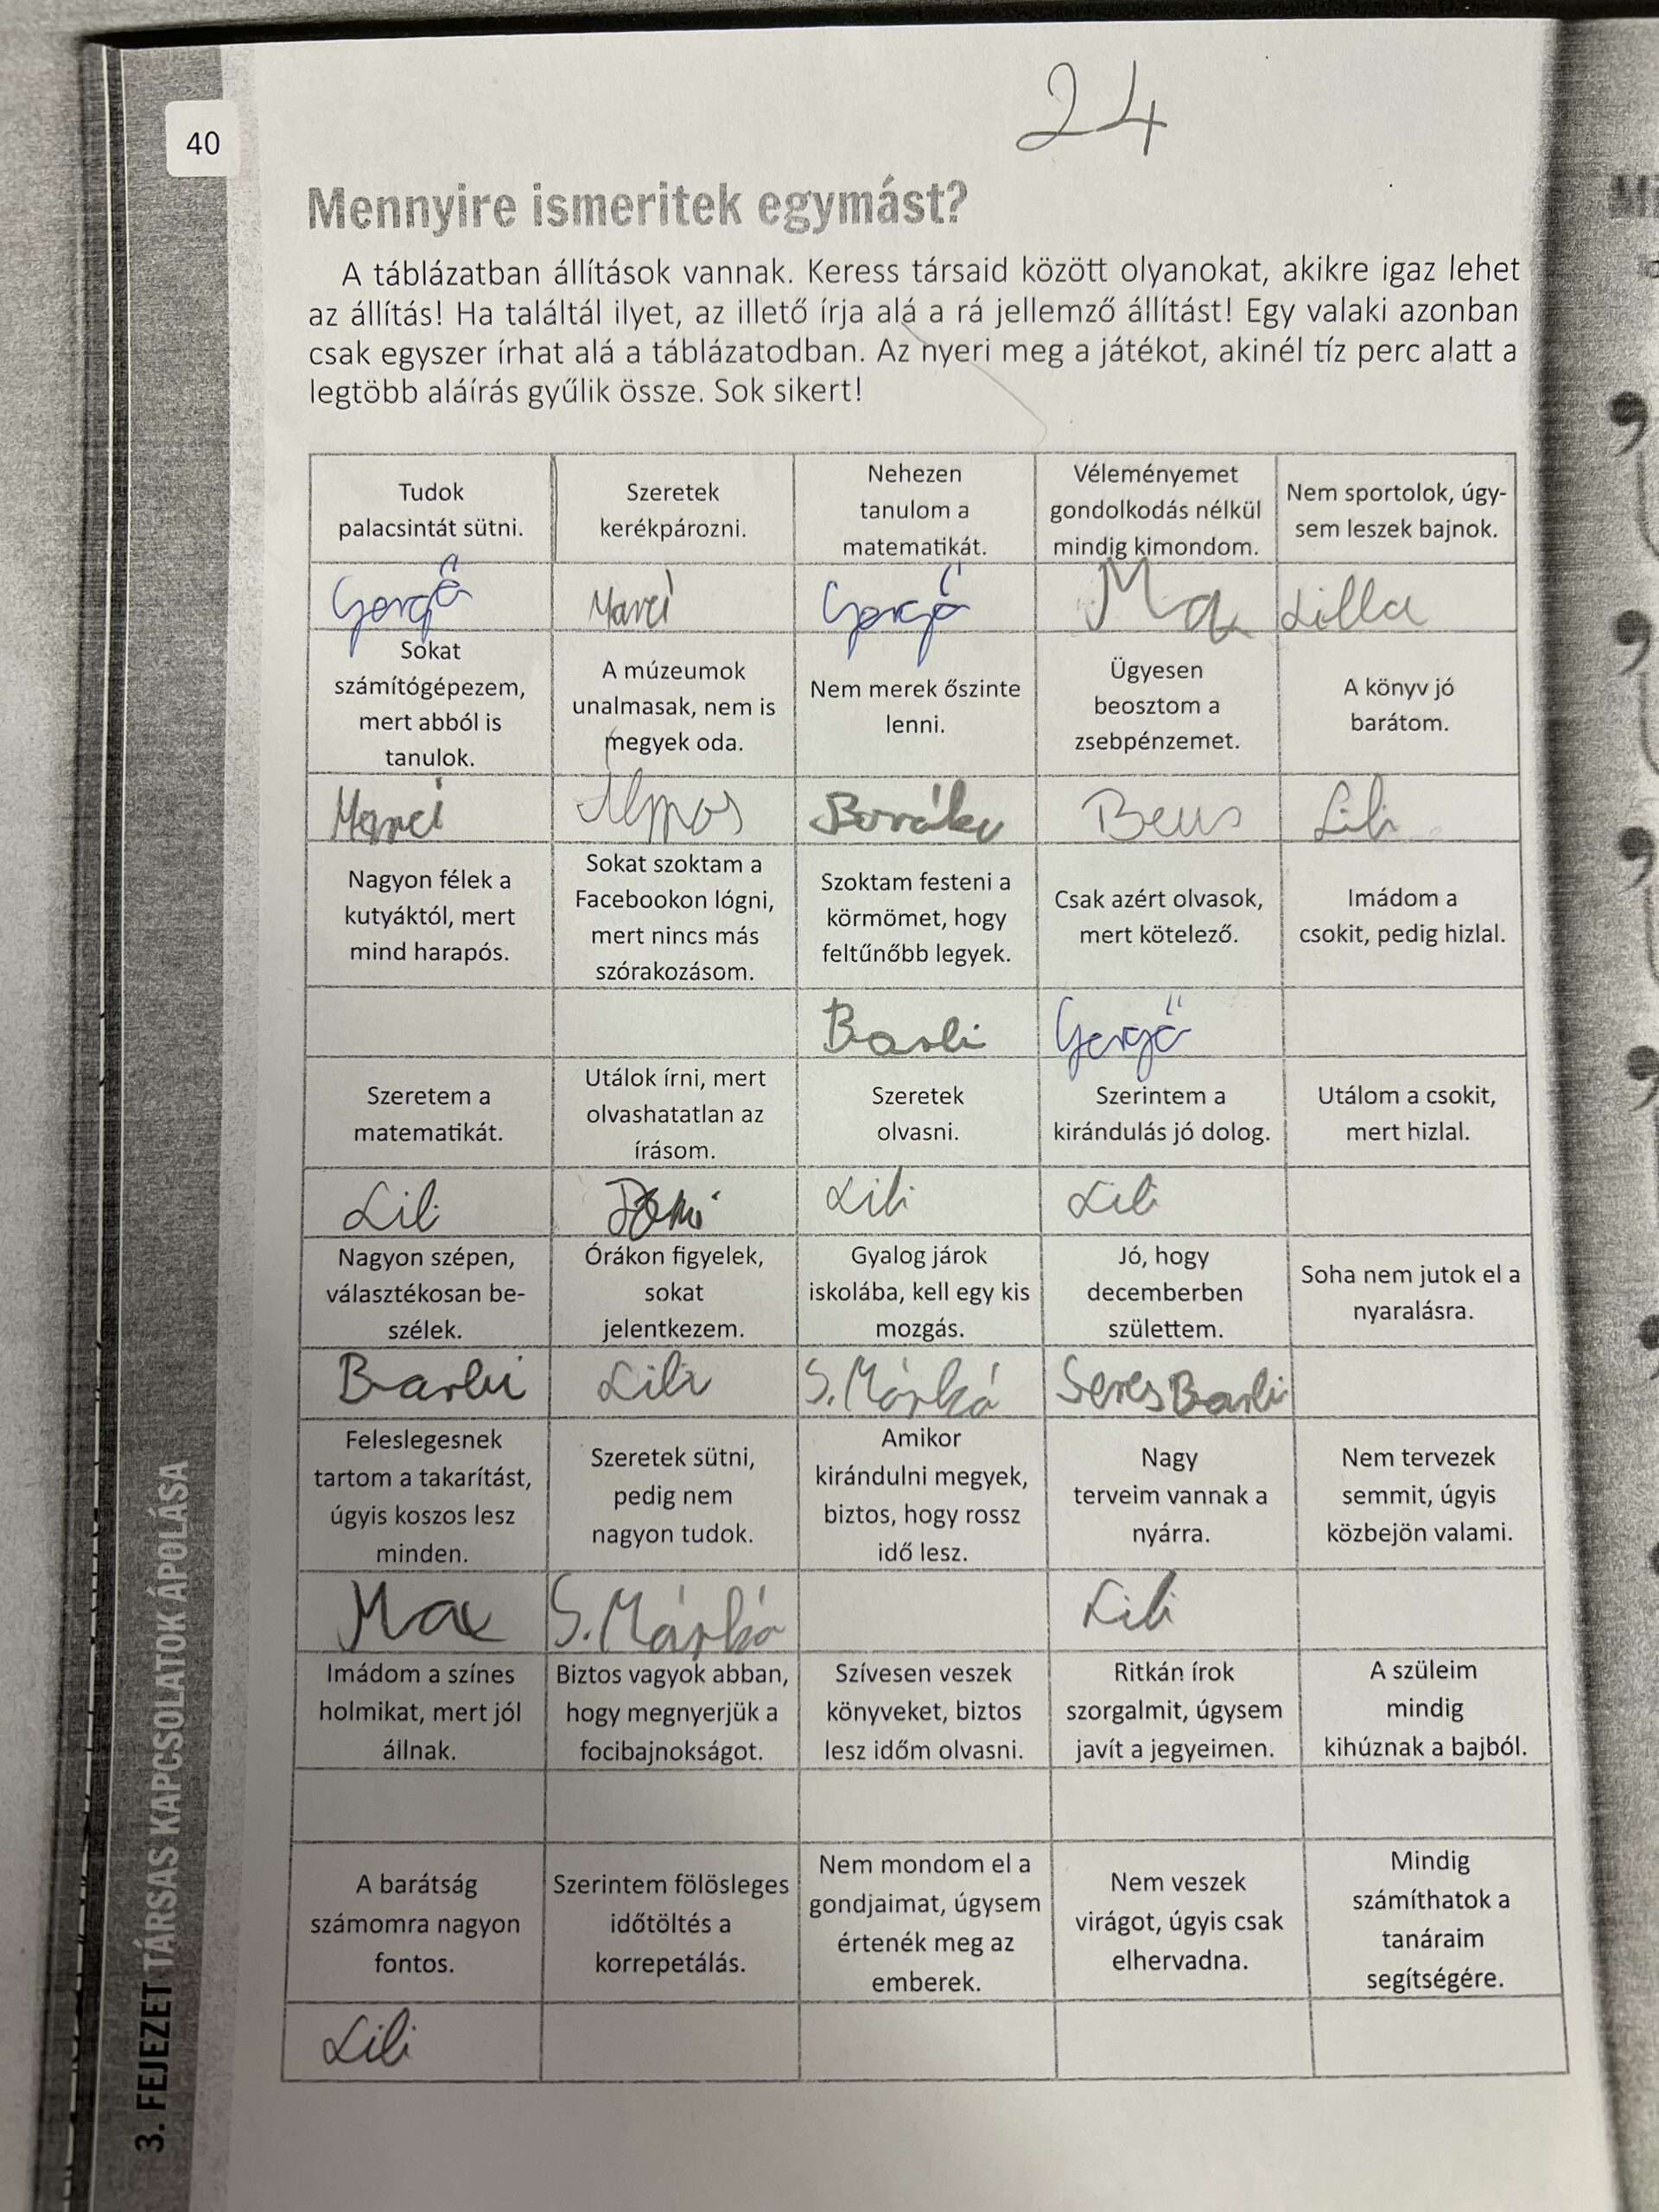 24
40
Mennyire ismeritek egymást?
A táblázatban állítások vannak. Keress társaid között olyanokat, akikre igaz lehet
az állítás! Ha találtál ilyet, az illető írja alá a rá jellemző állítást! Egy valaki azonban
csak egyszer írhat alá a táblázatodban. Az nyeri meg a játékot, akinél tíz perc alatt a
legtöbb aláírás gyűlik össze. Sok sikert!
Tudok
palacsintát sütni.
Szeretek
kerékpározni.
Nehezen
tanulom a
matematikát.
Véleményemet
gondolkodás nélkül
mindig kimondom.
Nem sportolok, úgy-
sem leszek bajnok.
Gergő
Marci
Gergő
Lilla
Sokat
számítógépezem,
mert abból is
tanulok.
A múzeumok
unalmasak, nem is
megyek oda.
Nem merek őszinte
lenni.
Ügyesen
beosztom a
zsebpénzemet.
A könyv jó
barátom.
Marci
Álmos
Lili
Nagyon félek a
kutyáktól, mert
mind harapós.
Sokat szoktam a
Facebookon lógni,
mert nincs más
szórakozásom.
Szoktam festeni a
körmömet, hogy
feltűnőbb legyek.
Csak azért olvasok,
mert kötelező.
Imádom a
csokit, pedig hizlal.
Barbi
Gergő
Szeretem a
matematikát.
Utálok írni, mert
olvashatatlan az
írásom.
Szeretek
olvasni.
Szerintem a
kirándulás jó dolog.
Utálom a csokit,
mert hizlal.
Lili
Lili
Lili
Nagyon szépen,
választékosan be-
szélek.
Órákon figyelek,
sokat
jelentkezem.
Gyalog járok
iskolába, kell egy kis
mozgás.
Jó, hogy
decemberben
születtem.
Soha nem jutok el a
nyaralásra.
Barbi
Lili
S. Márkó
Seres Barbi
Feleslegesnek
tartom a takarítást,
úgyis koszos lesz
minden.
Szeretek sütni,
pedig nem
nagyon tudok.
Amikor
kirándulni megyek,
biztos, hogy rossz
idő lesz.
Nagy
terveim vannak a
nyárra.
Nem tervezek
semmit, úgyis
közbejön valami.
Max
S. Márkó
Lili
Imádom a színes
holmikat, mert jól
állnak.
Biztos vagyok abban,
hogy megnyerjük a
focibajnokságot.
Szívesen veszek
könyveket, biztos
lesz időm olvasni.
Ritkán írok
szorgalmit, úgysem
javít a jegyeimen.
A szüleim
mindig
kihúznak a bajból.
A barátság
számomra nagyon
fontos.
Szerintem fölösleges
időtöltés a
korrepetálás.
Nem mondom el a
gondjaimat, úgysem
értenék meg az
emberek.
Nem veszek
virágot, úgyis csak
elhervadna.
Mindig
számíthatok a
tanáraim
segítségére.
Lili
3. FEJEZET TÁRSAS KAPCSOLATOK ÁPOLÁSA